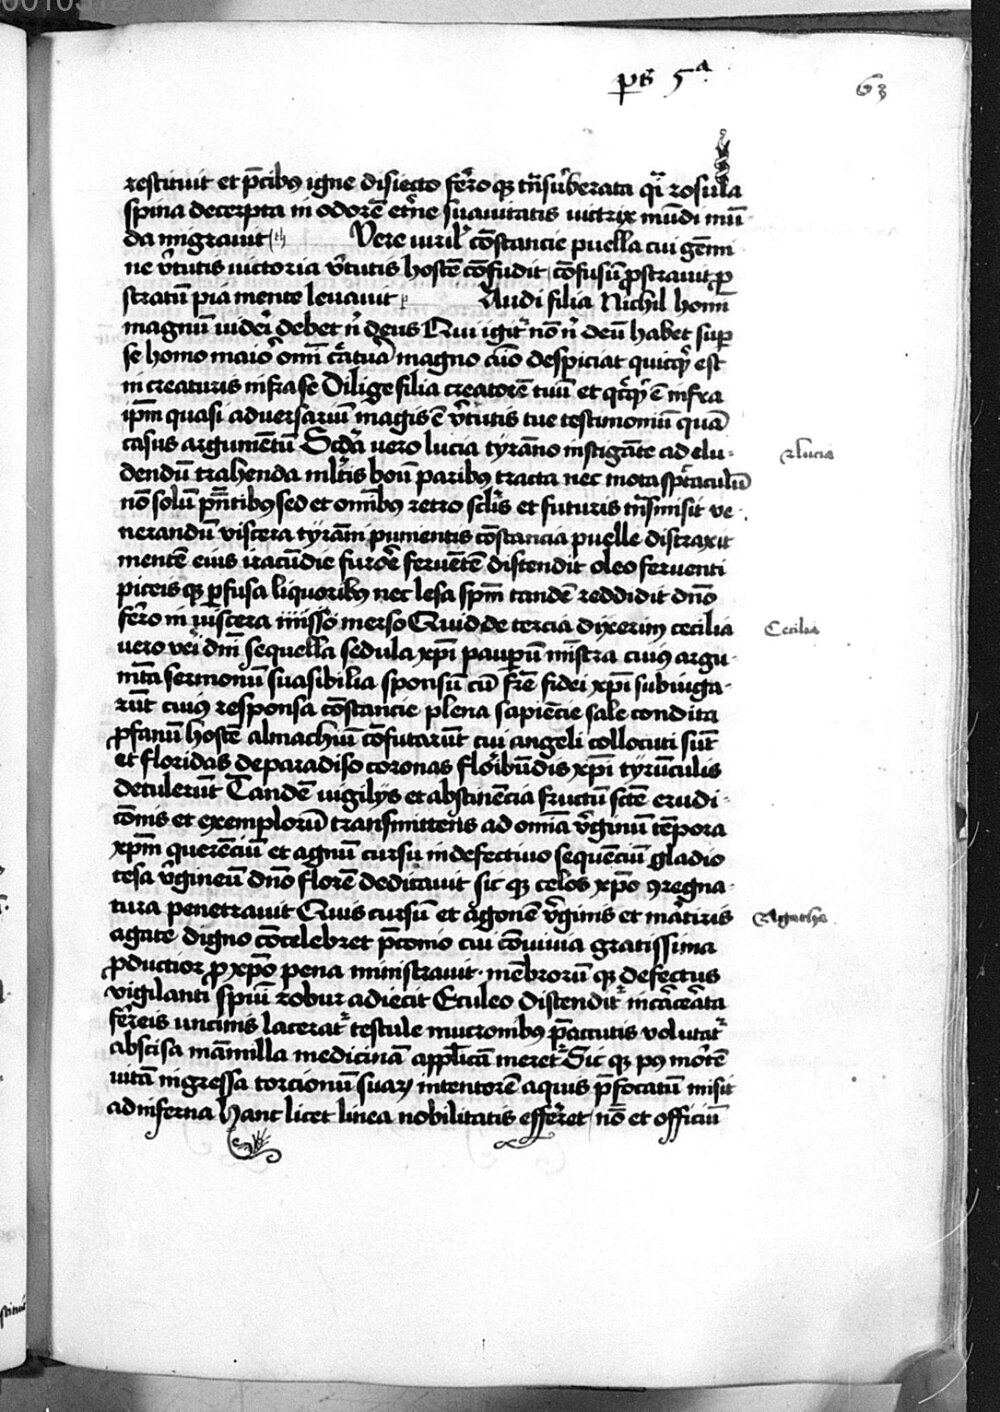 ps 5ª
63
restituit et p̄cibus igne disiecto fer̄o qꝫ tn̄suberata qͥ rosula
spina decerpta in odorē etn̄e suauitatis uictrix mūdi mū
da migrauit Vere uiril' cōstancie puella cui gēmi
ne v̄tutis uictoria v̄tutis hostē cōfudit cōfusū ꝓstrauit ꝓ
stratū pia mente leuauit Audi filia Nichil homī
magnū uideri debet n̄ deus Qui igit̄ nō n̄ deū habet suꝑ
se homo maior̄ omī cr̄atura magno aīo despiciat quicqͥd est
in creaturis infra se Dilige filia creatorē tuū et qͥcqͥd ē infra
ip̄m quasi aduersariū magis ē v̄tutis tue testimoniū quā
casus argumētū Scd̄a uero lucia tyrāno instigāte ad elu-
dendū trahenda ml̄tis boū paribus tracta nec mota spectaculū
nō solū p̄n̄tibus sed et omībus retro scl̄is et futuris tn̄smisit ve-
nerandū viscera tyrāni punientis cōstancia puelle distraxit
mentē eius iracūdie furor̄e feruētē distendit oleo feruenti
piceis qꝫ ꝑfusa liquoribus nec lesa sp̄m tandē reddidit dn̄o
fer̄o in viscera īmisso merso Quid de tercia dixerim cecilia
uero veri dn̄i sequella sedula xp̄i pauꝑū mīstra cuius argu-
mēta sermonū suasibilia sponsū cū fr̄e fidei xp̄i subiuga-
rūt cuius responsa cōstancie plena sapiēcie sale condita
ꝓfanū hostē almachiū cōfutarūt cui angeli collocuti sūt
et floridas de paradiso coronas floribūdis xp̄i tyrūculis
detulerūt Tandē uigilijs et abstinēcia fructū scē erudi-
cōnis et exemplorū transmittens ad omīa v̄ginū tēpora
xp̄m querēciū et agnū cursu indefectiuo sequēciū gladio
cesa v̄gineū dn̄o florē dedicauit sic qꝫ celos xp̄o ꝯregna-
tura penetrauit Quis cursū et agonē v̄ginis et mar̄tiris
agate digno cōcelebret p̄conio cui cōuiuia gratissima
ꝓductior ꝓ xp̄o pena ministrauit mēbrorū qꝫ defectus
vigilanti spiūi robur adiecit Eculeo distendit̄ incar̄cerāta
fer̄reis uncinis lacerat̄ testule mucronibus p̄acutis volutat̄
abscisa māmilla medicinā applīcā meret̄ Sic qꝫ pꝰ mor̄tē
uitā ingressa torcionū suaꝝ intentorē aquis p̄focatū misit
ad inferna Hanc licet linea nobilitatis effer̄ret nō et officiū
2 lucia
Cecilia
Agatha